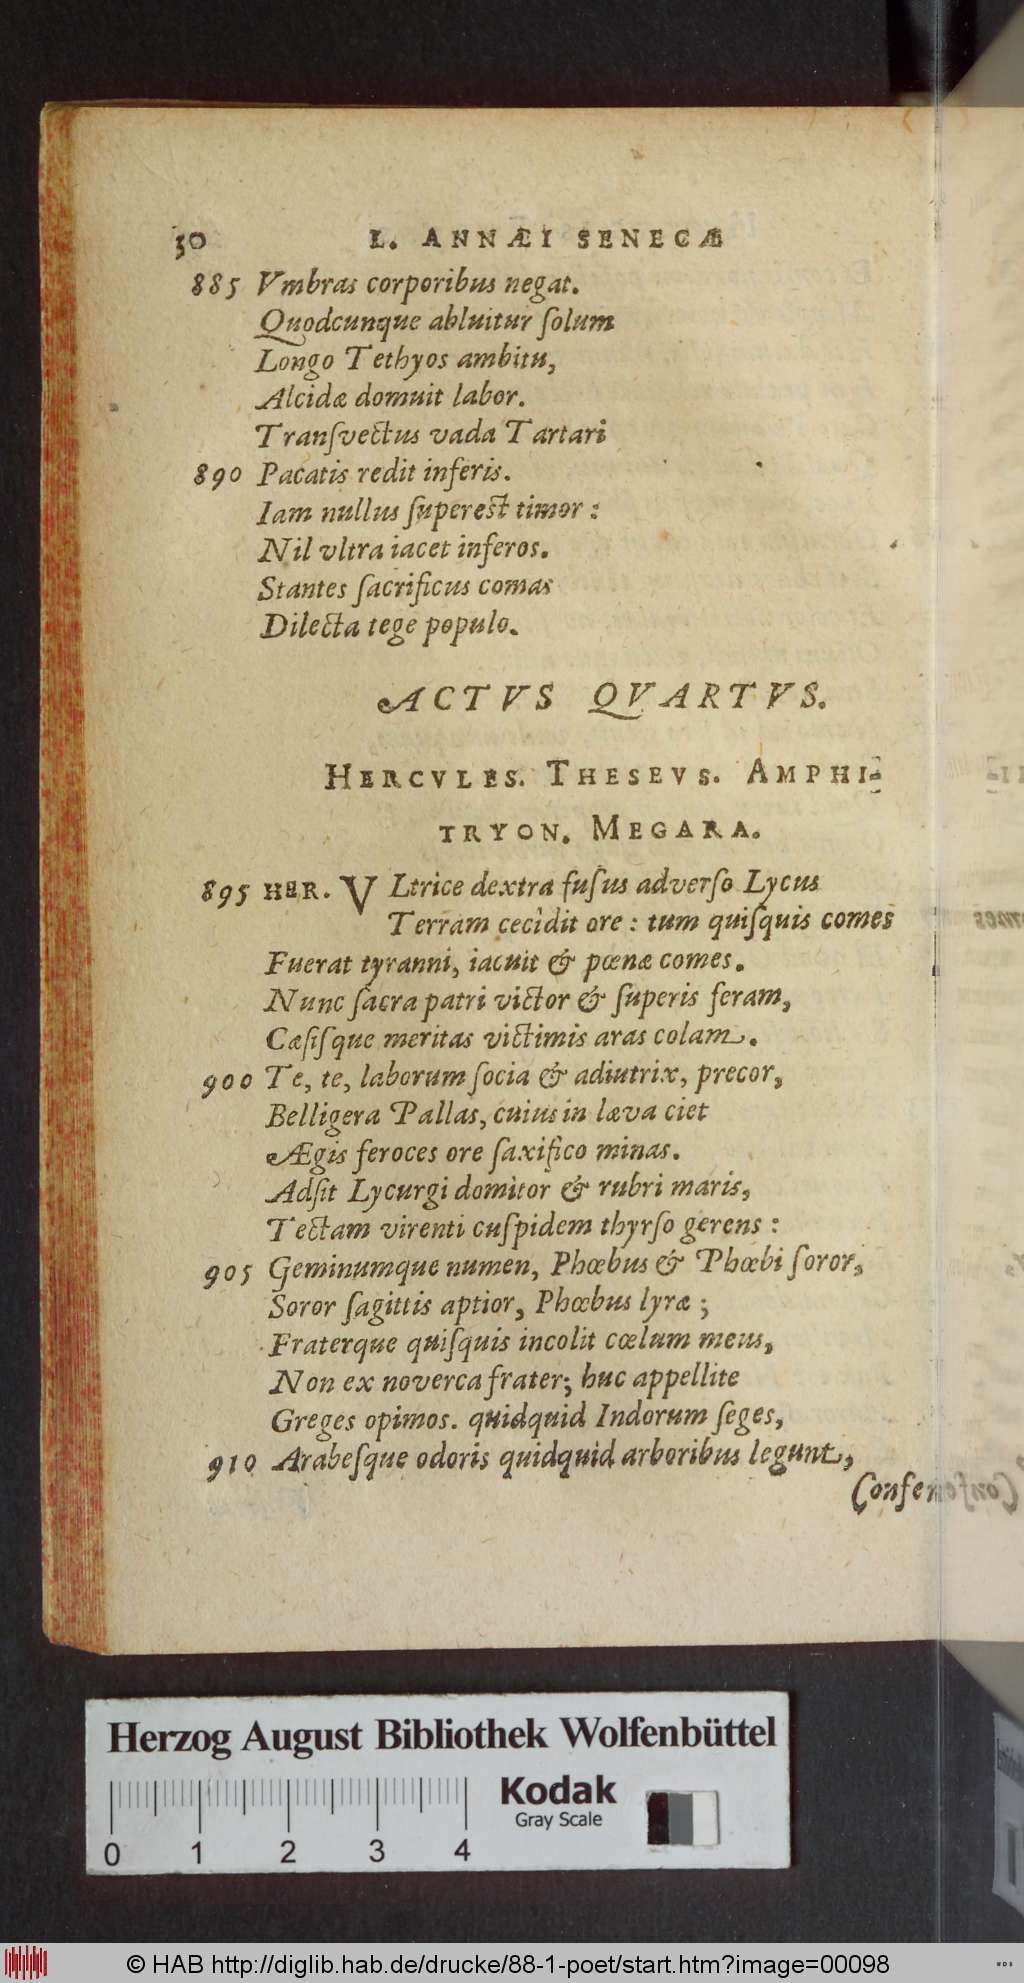 50 L. ANNÆI SENECÆ
885 Vmbras corporibus negat.
Quodcunque abluitur ſolum
Longo Tethyos ambitu,
Alcidæ domuit labor.
Tranſvectus vada Tartari
890 Pacatis redit inferis.
Iam nullus ſupereſt timor :
Nil vltra iacet inferos.
Stantes ſacrificus comas
Dilecta tege populo.
ACTVS QVARTVS.
HERCVLES. THESEVS. AMPHI-
TRYON. MEGARA.
895 HER. VLtrice dextra fuſus adverſo Lycus
Terram cecidit ore : tum quiſquis comes
Fuerat tyranni, iacuit & pœnæ comes.
Nunc ſacra patri victor & ſuperis feram,
Cæſiſque meritas victimis aras colam.
900 Te, te, laborum ſocia & adiutrix, precor,
Belligera Pallas, cuius in læva ciet
Ægis feroces ore ſaxifico minas.
Adſit Lycurgi domitor & rubri maris,
Tectam virenti cuſpidem thyrſo gerens :
905 Geminumque numen, Phœbus & Phœbi ſoror,
Soror ſagittis aptior, Phœbus lyræ ;
Fraterque quiſquis incolit cœlum meus,
Non ex noverca frater; huc appellite
Greges opimos. quidquid Indorum ſeges,
910 Arabeſque odoris quidquid arboribus legunt,
Conſen
Herzog August Bibliothek Wolfenbüttel
Kodak
Gray Scale
0 1 2 3 4
© HAB http://diglib.hab.de/drucke/88-1-poet/start.htm?image=00098